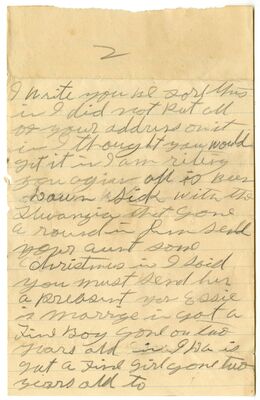 2
I write you be sorf this
in I did not Put all
of your address on it
in I thought you would
get it in I am riting
you agian all so been
Down Sick with the
that gone
a round in I'm send
your aunt some
Christmas in I said
you must send her
a Present yes Essie
is marrige in got a
Fine Boy gone on two
years old in Ida is
got a Fine girl gone two
years old to